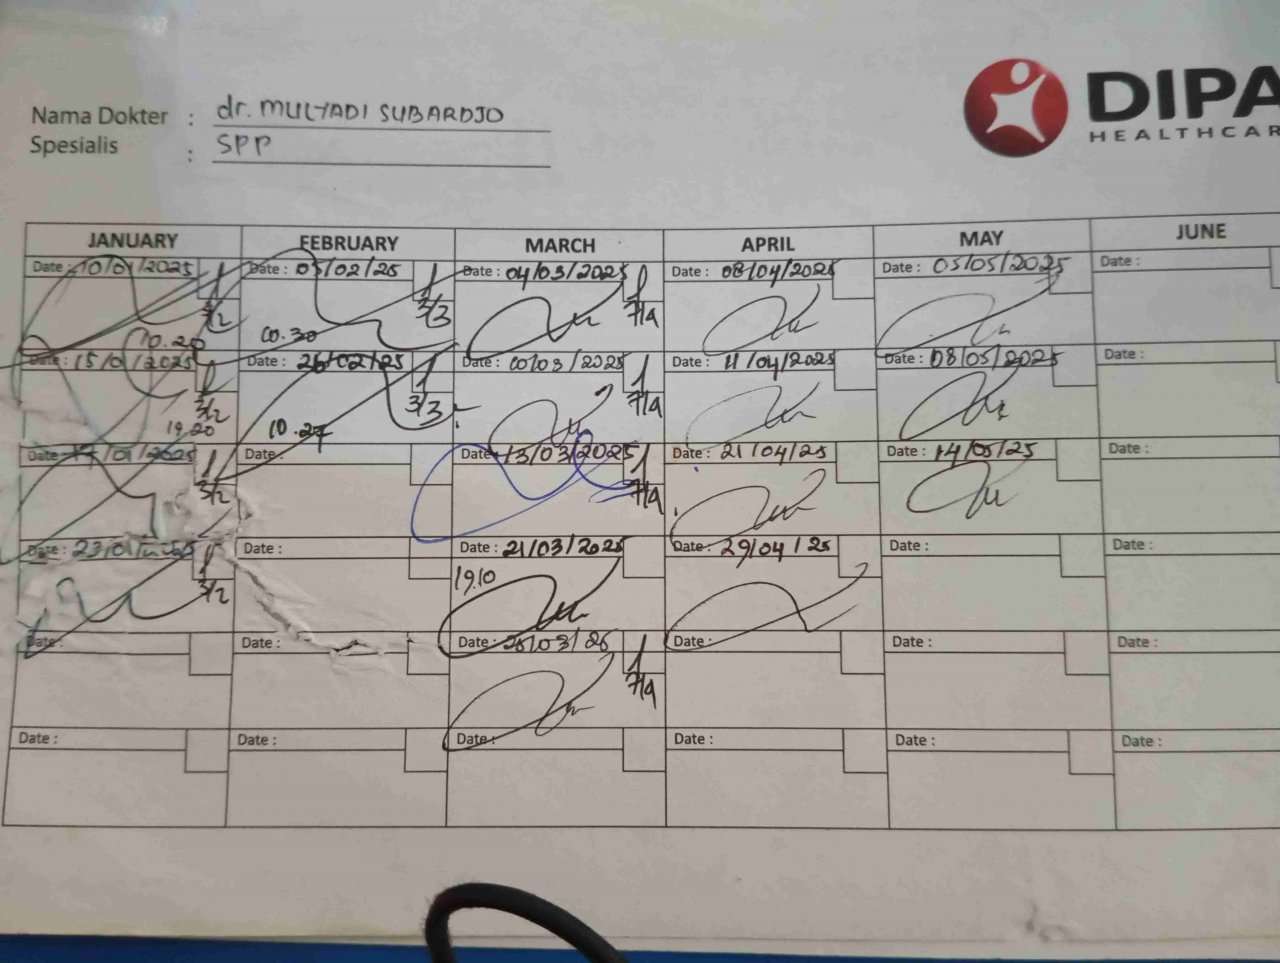 Nama Dokter : dr. MULYADI SUBARDJO
Spesialis : SPP
DIPA
HEALTHCAR
JANUARY FEBRUARY MARCH APRIL MAY JUNE
Date : 10/01/2025 Date : 05/02/25 Date : 04/03/2025 Date : 08/04/2025 Date : 05/05/2025 Date :
3/2 3/3 7/4
10.20 10.30
Date : 15/01/2025 Date : 26/02/25 Date : /03/2025 Date : 11/04/2025 Date : 08/05/2025 Date :
3/2 3/3 7/4
19.20 10.27
Date : /01/2025 Date : Date : 13/03/2025 Date : 21/04/25 Date : 14/05/25 Date :
3/2 7/4
Date : 23/01/ Date : Date : 21/03/2025 Date : 29/04/25 Date : Date :
3/2 19.10
Date : Date : Date : /03/25 Date : Date : Date :
7/4
Date : Date : Date : Date : Date : Date :